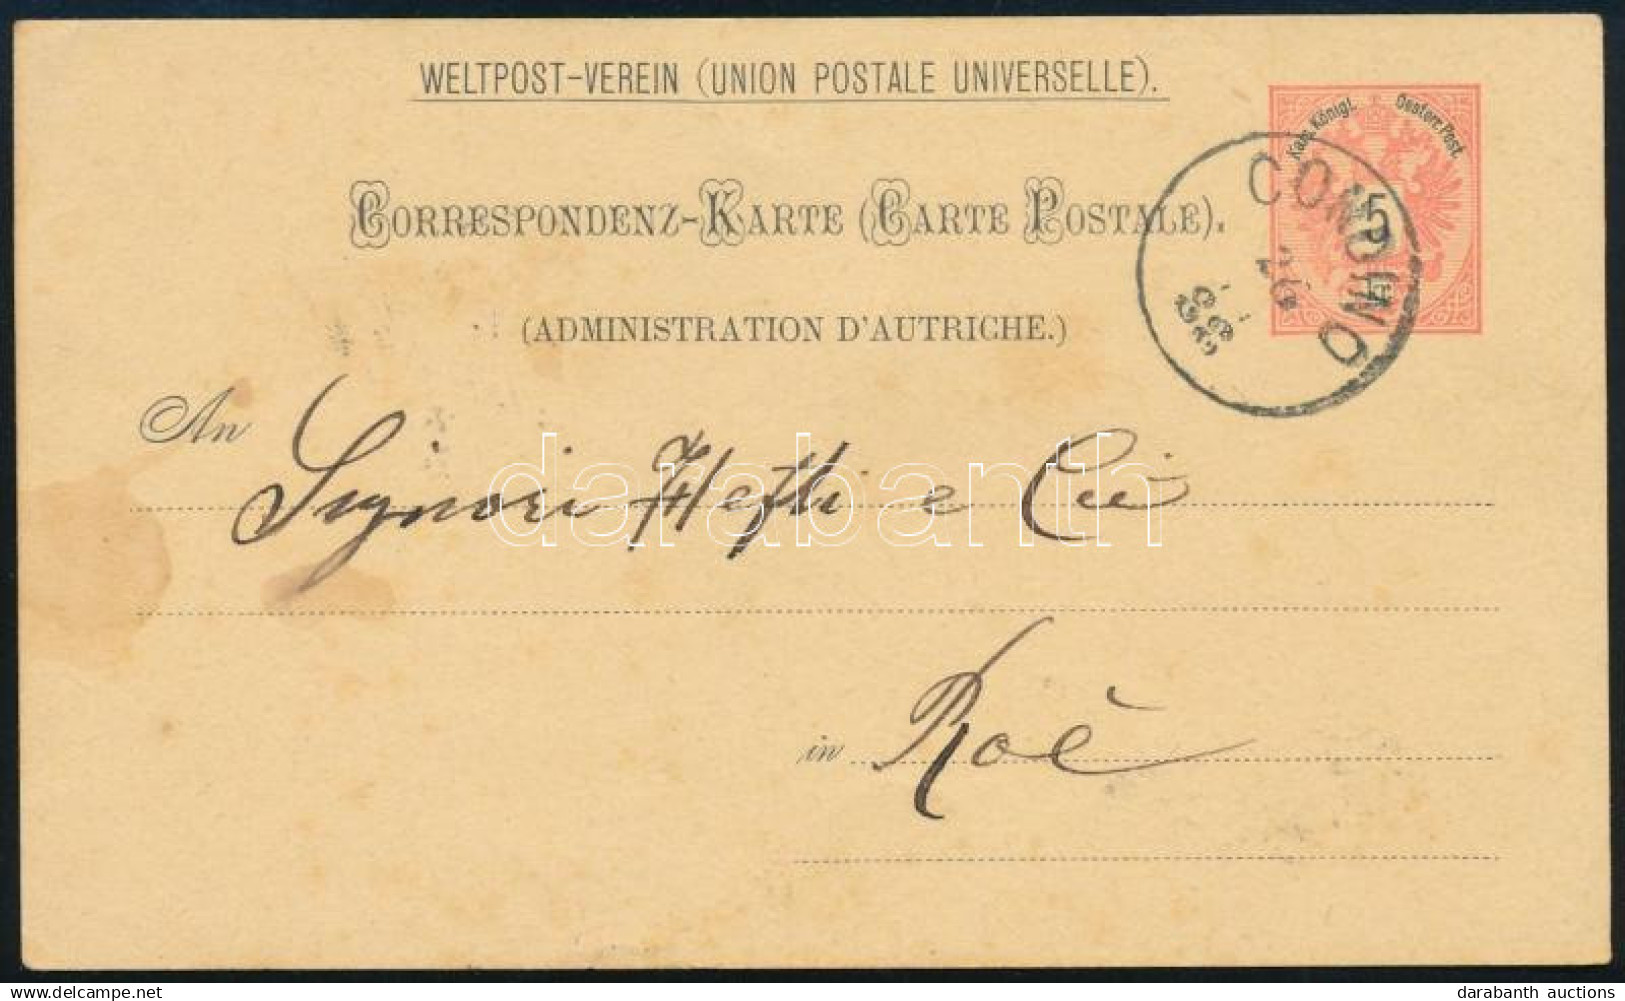 WELTPOST-VEREIN (UNION POSTALE UNIVERSELLE).
Kais. Königl. Oesterr. Post.
5
CONDINO
CORRESPONDENZ-KARTE (CARTE POSTALE).
(ADMINISTRATION D'AUTRICHE.)
An Signori Hefti e Cie
darabanth
in Roè
www.darabanth.com
darabanth auctions